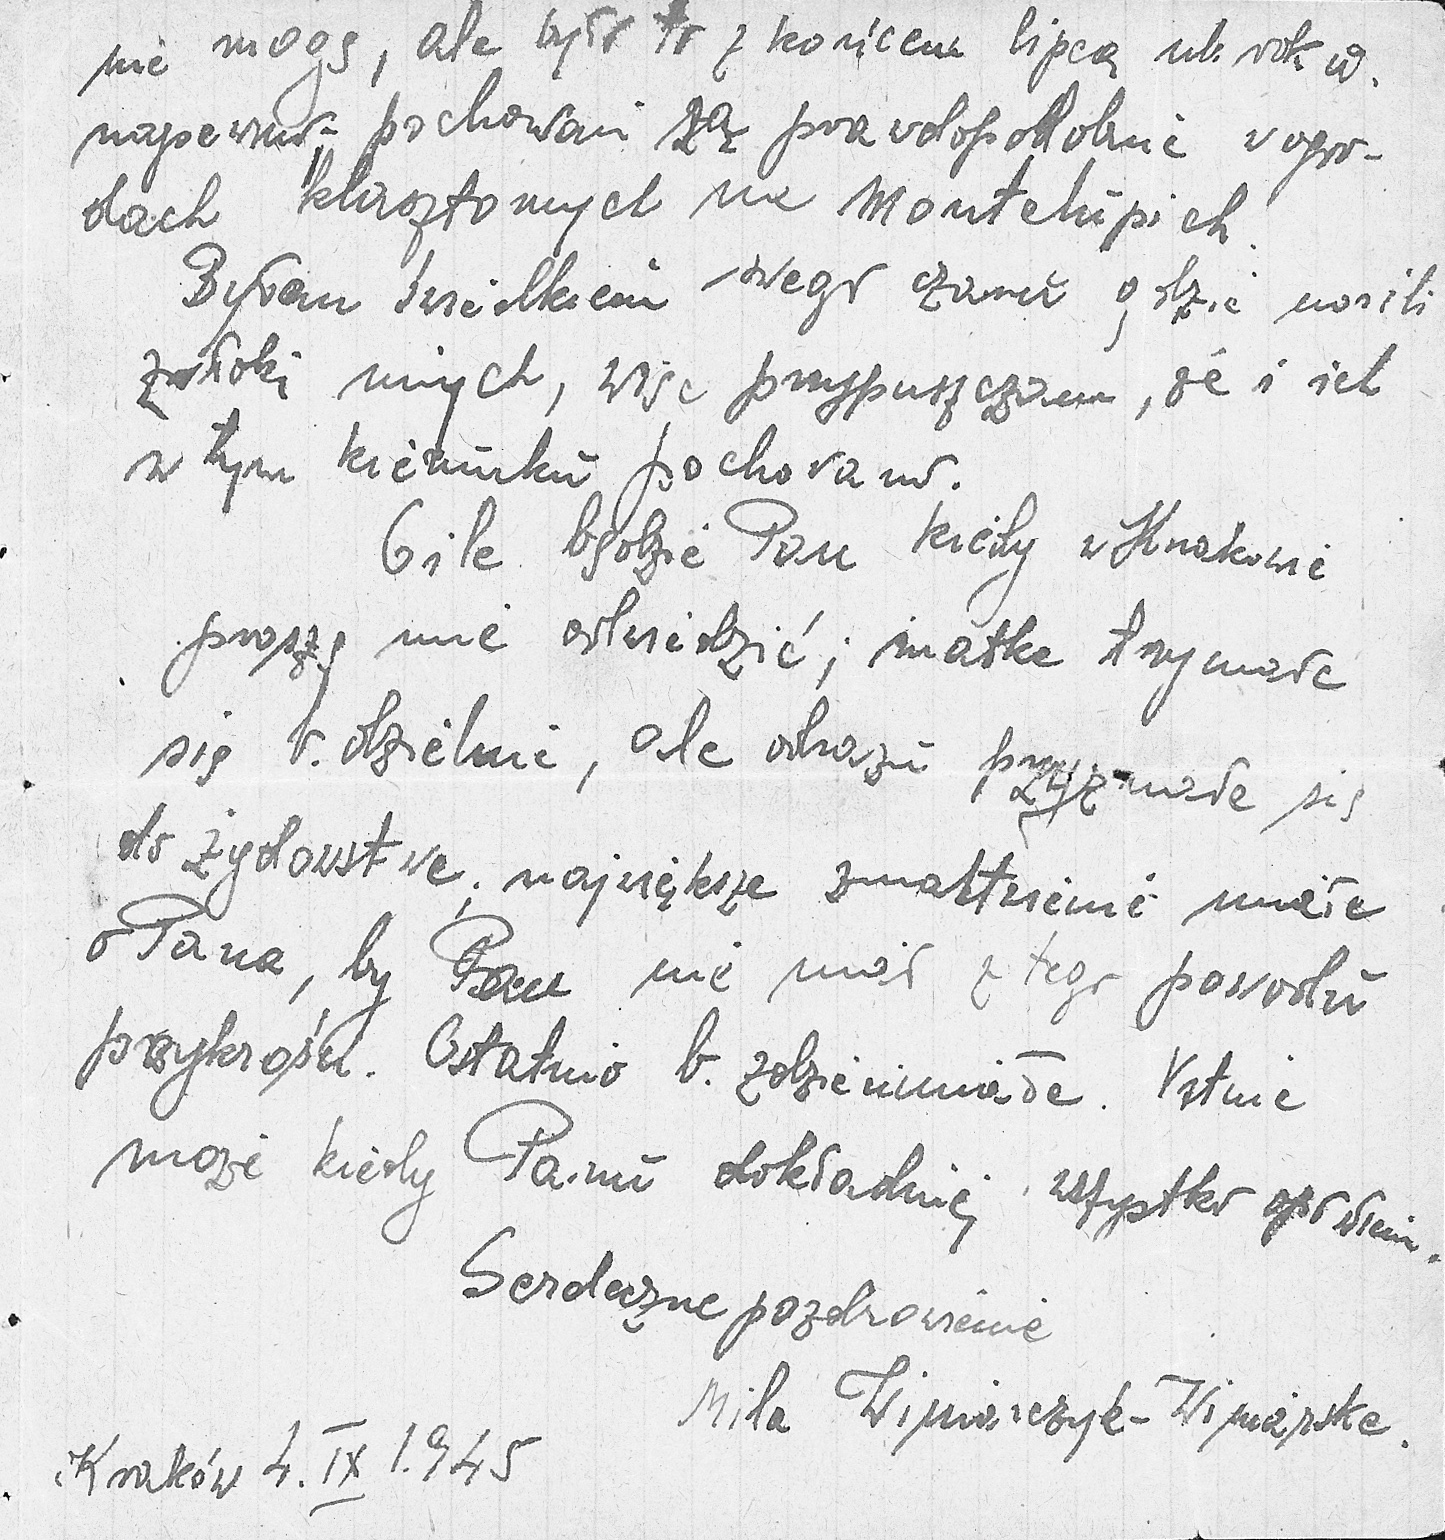 nie mogę, ale było to z końcem lipca ub. roku.
napewno, pochowani są prawdopodobnie w ogro-
dach klasztornych na Montelupich.
Byłam świadkiem swego czasu gdzie nosili
zwłoki innych, więc przypuszczam, że i ich
w tym kierunku pochowano.
O ile będzie Pan kiedy w Krakowie
proszę mię odwiedzić; matka trzymała
się b. dzielnie, ale odrazu przyznała się
do żydowstwa, największe zmartwienie miała
o Pana, by Pan nie miał z tego powodu
przykrości. Ostatnio b. zdziecinniała. Ustnie
może kiedy Panu dokładniej wszystko opowiem.
Serdeczne pozdrowienie
Mila Winiarczyk-Winiarska.
Kraków 4.IX 1945